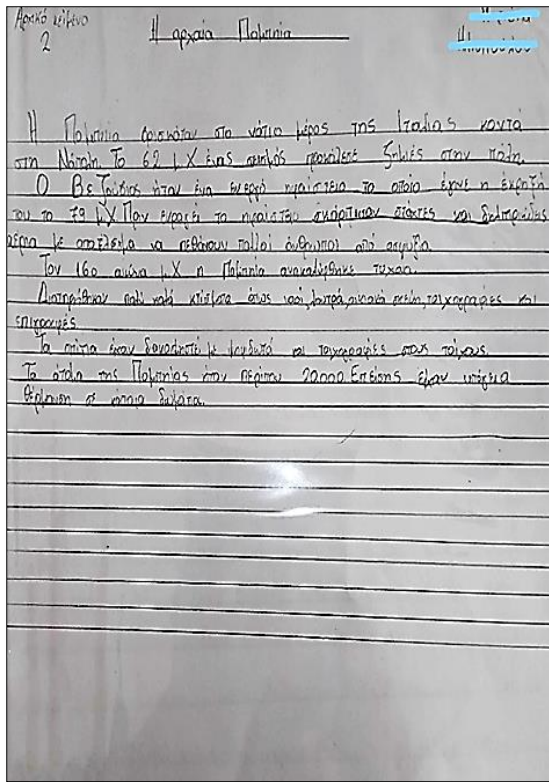 Αρχικό κείμενο
2
Η αρχαία Πομπηία
Η Πομπηία βρισκόταν στο νότιο μέρος της Ιταλίας κοντά
στη Νάπολη. Το 62 μ.Χ ένας σεισμός προκάλεσε ζημιές στην πόλη.
Ο Βεζούβιος ήταν ένα ενεργό ηφαίστειο το οποίο έγινε η έκρηξή
του το 79 μ.Χ Πριν εκραγεί το ηφαίστειο σκόρπισαν στάχτες και
αέρια με αποτέλεσμα να πεθάνουν πολλοί άνθρωποι από ασφυξία.
Τον 16ο αιώνα μ.Χ η Πομπηία ανακαλύφθηκε τυχαία.
Διατηρήθηκαν πολύ καλά κτίσματα όπως ιερά, λουτρά, οικιακά σκεύη, τοιχογραφίες και
επιγραφές
Τα σπίτια έταν με ψηφιδωτά και τοιχογραφίες στους τοίχους.
Το της Πομπηίας ήταν περίπου 20.000. Επείσης είχαν υπόγεια
θέρμανση σε κάποια δωμάτια.